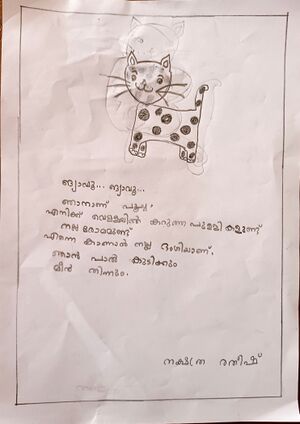 ങ്യാവൂ... ങ്യാവൂ...
ഞാനാണ് പൂച്ച.
എനിക്ക് വെള്ളയിൽ കറുത്ത പുള്ളി കളുണ്ട്
നല്ല രോമമുണ്ട്
എന്നെ കാണാൻ നല്ല ഭംഗിയാണ്.
ഞാൻ പാൽ കുടിക്കും
മീൻ തിന്നും.
നക്ഷത്ര രതീഷ്